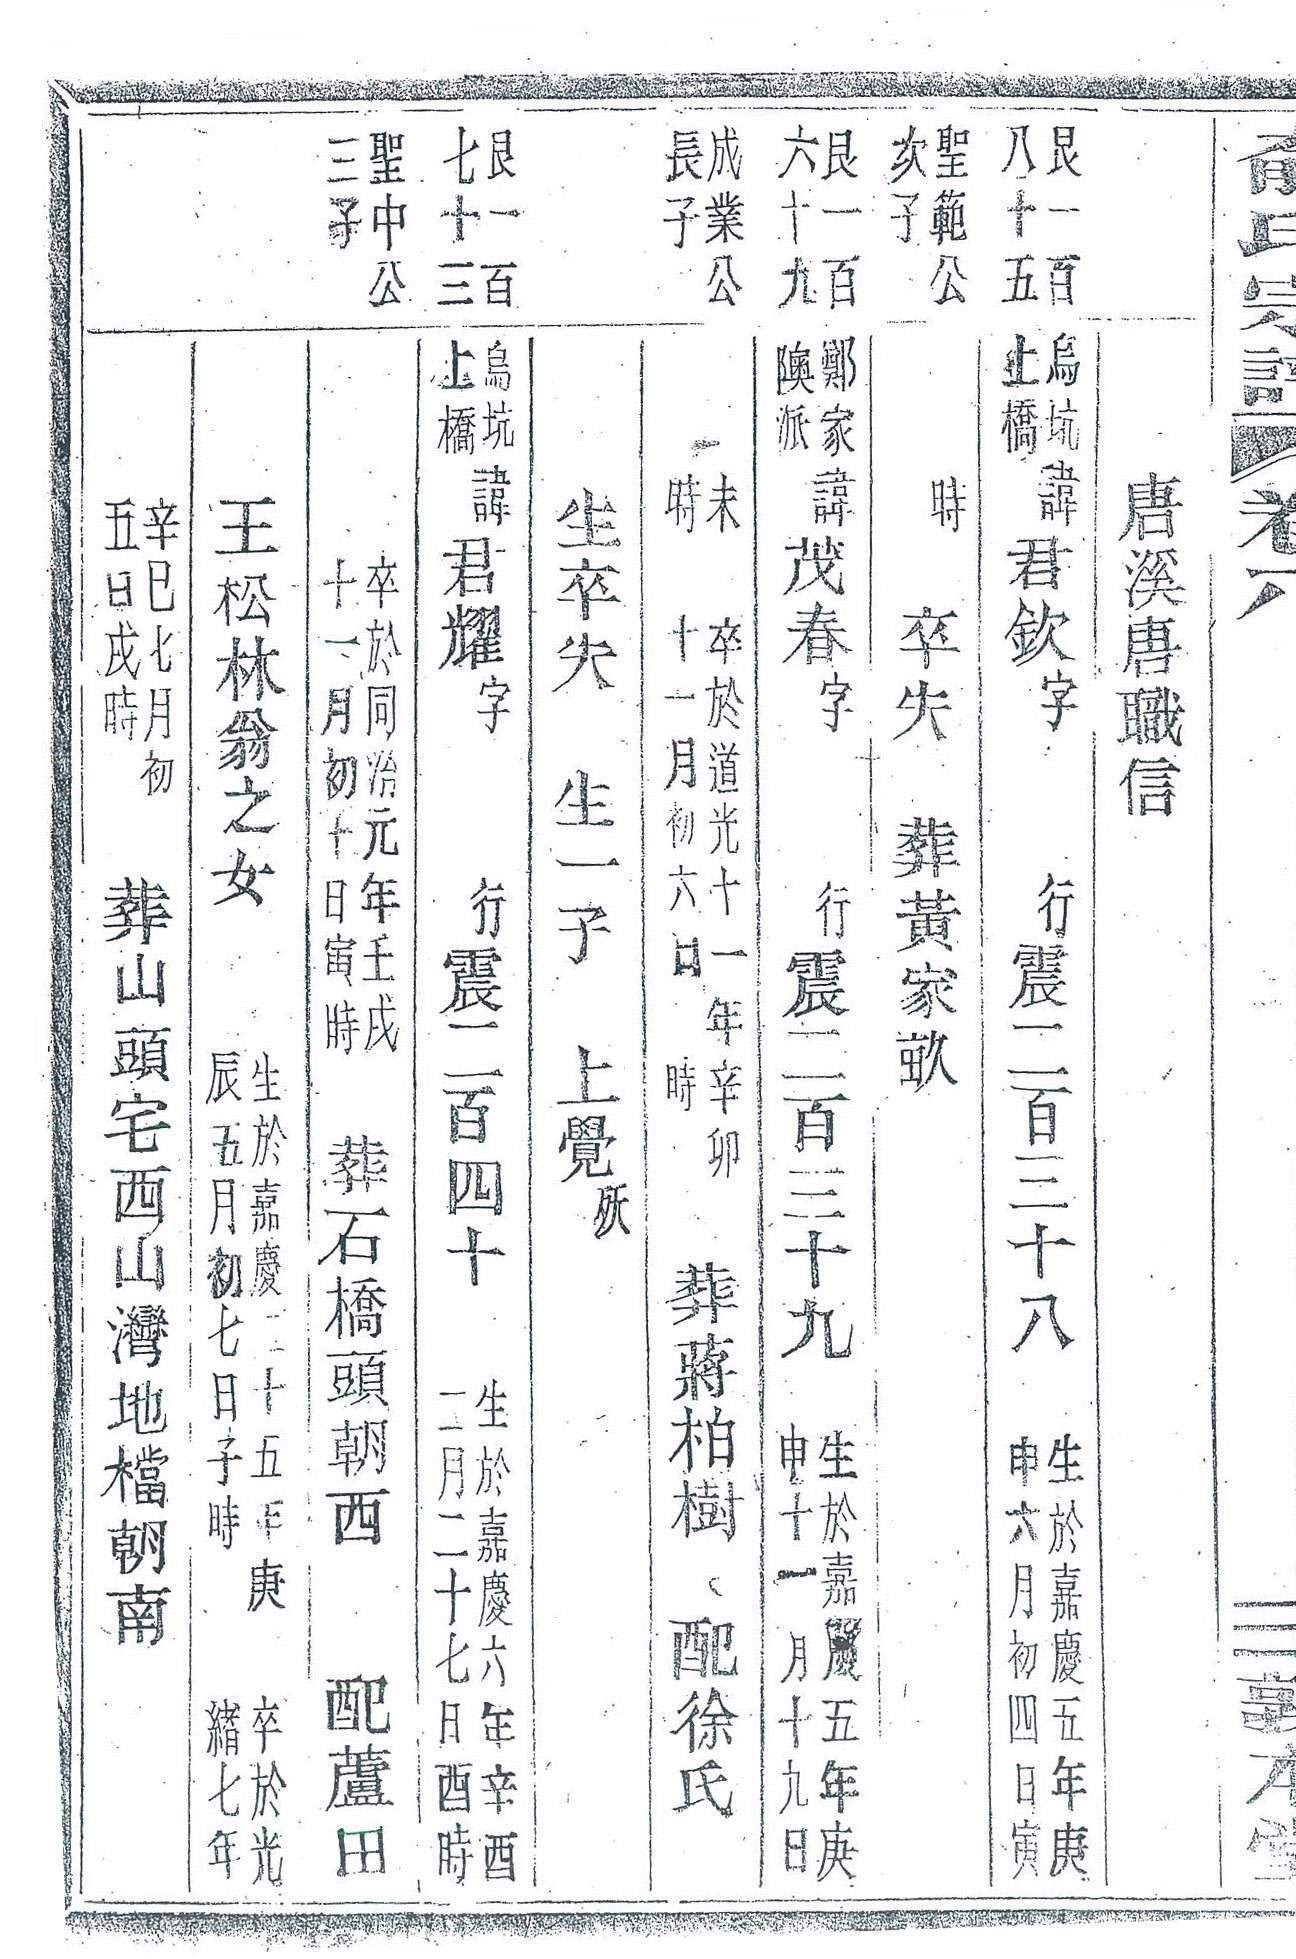 俞氏宗譜 卷六 敦本堂
唐溪唐職信
艮一百八十五 烏坑上橋 諱君欽字 行震二百三十八 生於嘉慶五年庚申六月初四日寅
聖範公次子 時 卒失 葬黃家畝
艮一百六十九 鄭家隩派 諱茂春字 行震二百三十九 生於嘉慶五年庚申十一月十九日
成業公長子 未時 卒於道光十一年辛卯十一月初六日 時 葬蔣柏樹 配徐氏
生卒失 生一子 上覺
艮一百七十三 烏坑上橋 諱君耀字 行震二百四十 生於嘉慶六年辛酉二月二十七日酉時
聖中公三子 卒於同治元年壬戌十一月初十日寅時 葬石橋頭朝西 配蘆田
王松林翁之女 生於嘉慶二十五年庚辰五月初七日子時 卒於光緒七年
辛巳七月初五日戌時 葬山頭宅西山灣地檔朝南